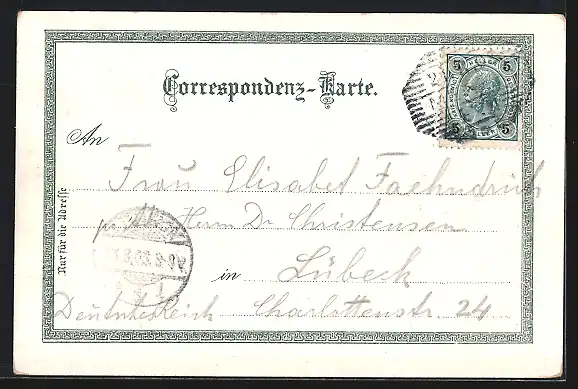 Correspondenz-Karte.
5 5
5 5
An
Frau Elisabet Faehndrich
Herrn Dr Christensen
in Lübeck
Charlottenstr. 24
Nur für die Adresse